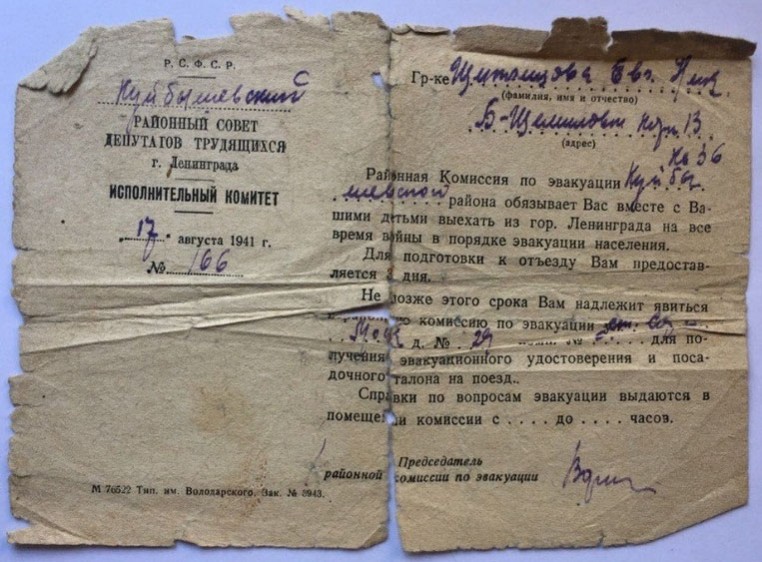 Р. С. Ф. С. Р.
Куйбышевский
РАЙОННЫЙ СОВЕТ
ДЕПУТАТОВ ТРУДЯЩИХСЯ
г. Ленинграда
ИСПОЛНИТЕЛЬНЫЙ КОМИТЕТ
„17“ августа 1941 г.
№ 166
М 76522 Тип. им. Володарского. Зак. № 3943.
Гр-ке Евг. Ник.
(фамилия, имя и отчество)
кв. 13
(адрес)
№ 36
Районная Комиссия по эвакуации Куйбы
шевской района обязывает Вас вместе с Ва-
шими детьми выехать из гор. Ленинграда на все
время войны в порядке эвакуации населения.
Для подготовки к отъезду Вам предостав-
ляется дня.
Не позже этого срока Вам надлежит явиться
в районную комиссию по эвакуации
д. № 29 № . . . . . для по-
лучения эвакуационного удостоверения и поса-
дочного талона на поезд.
Справки по вопросам эвакуации выдаются в
помещении комиссии с . . . . до . . . . часов.
Председатель
районной комиссии по эвакуации